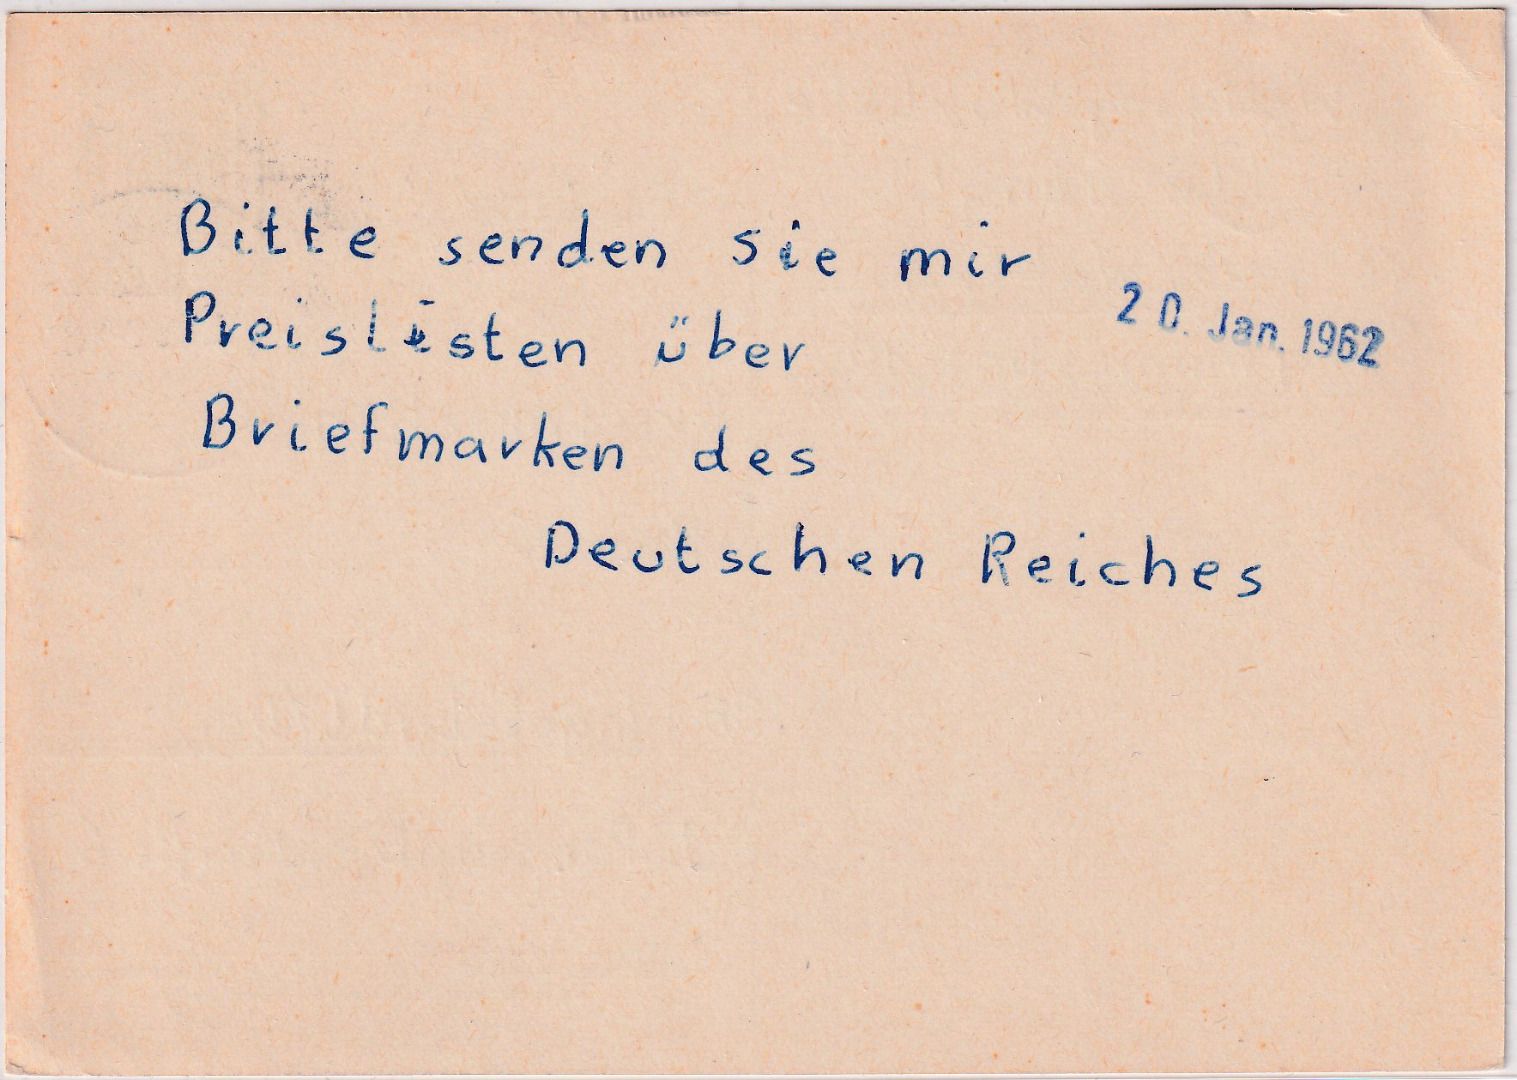 Bitte senden sie mir
20. Jan. 1962
Preislisten über
Briefmarken des
Deutschen Reiches